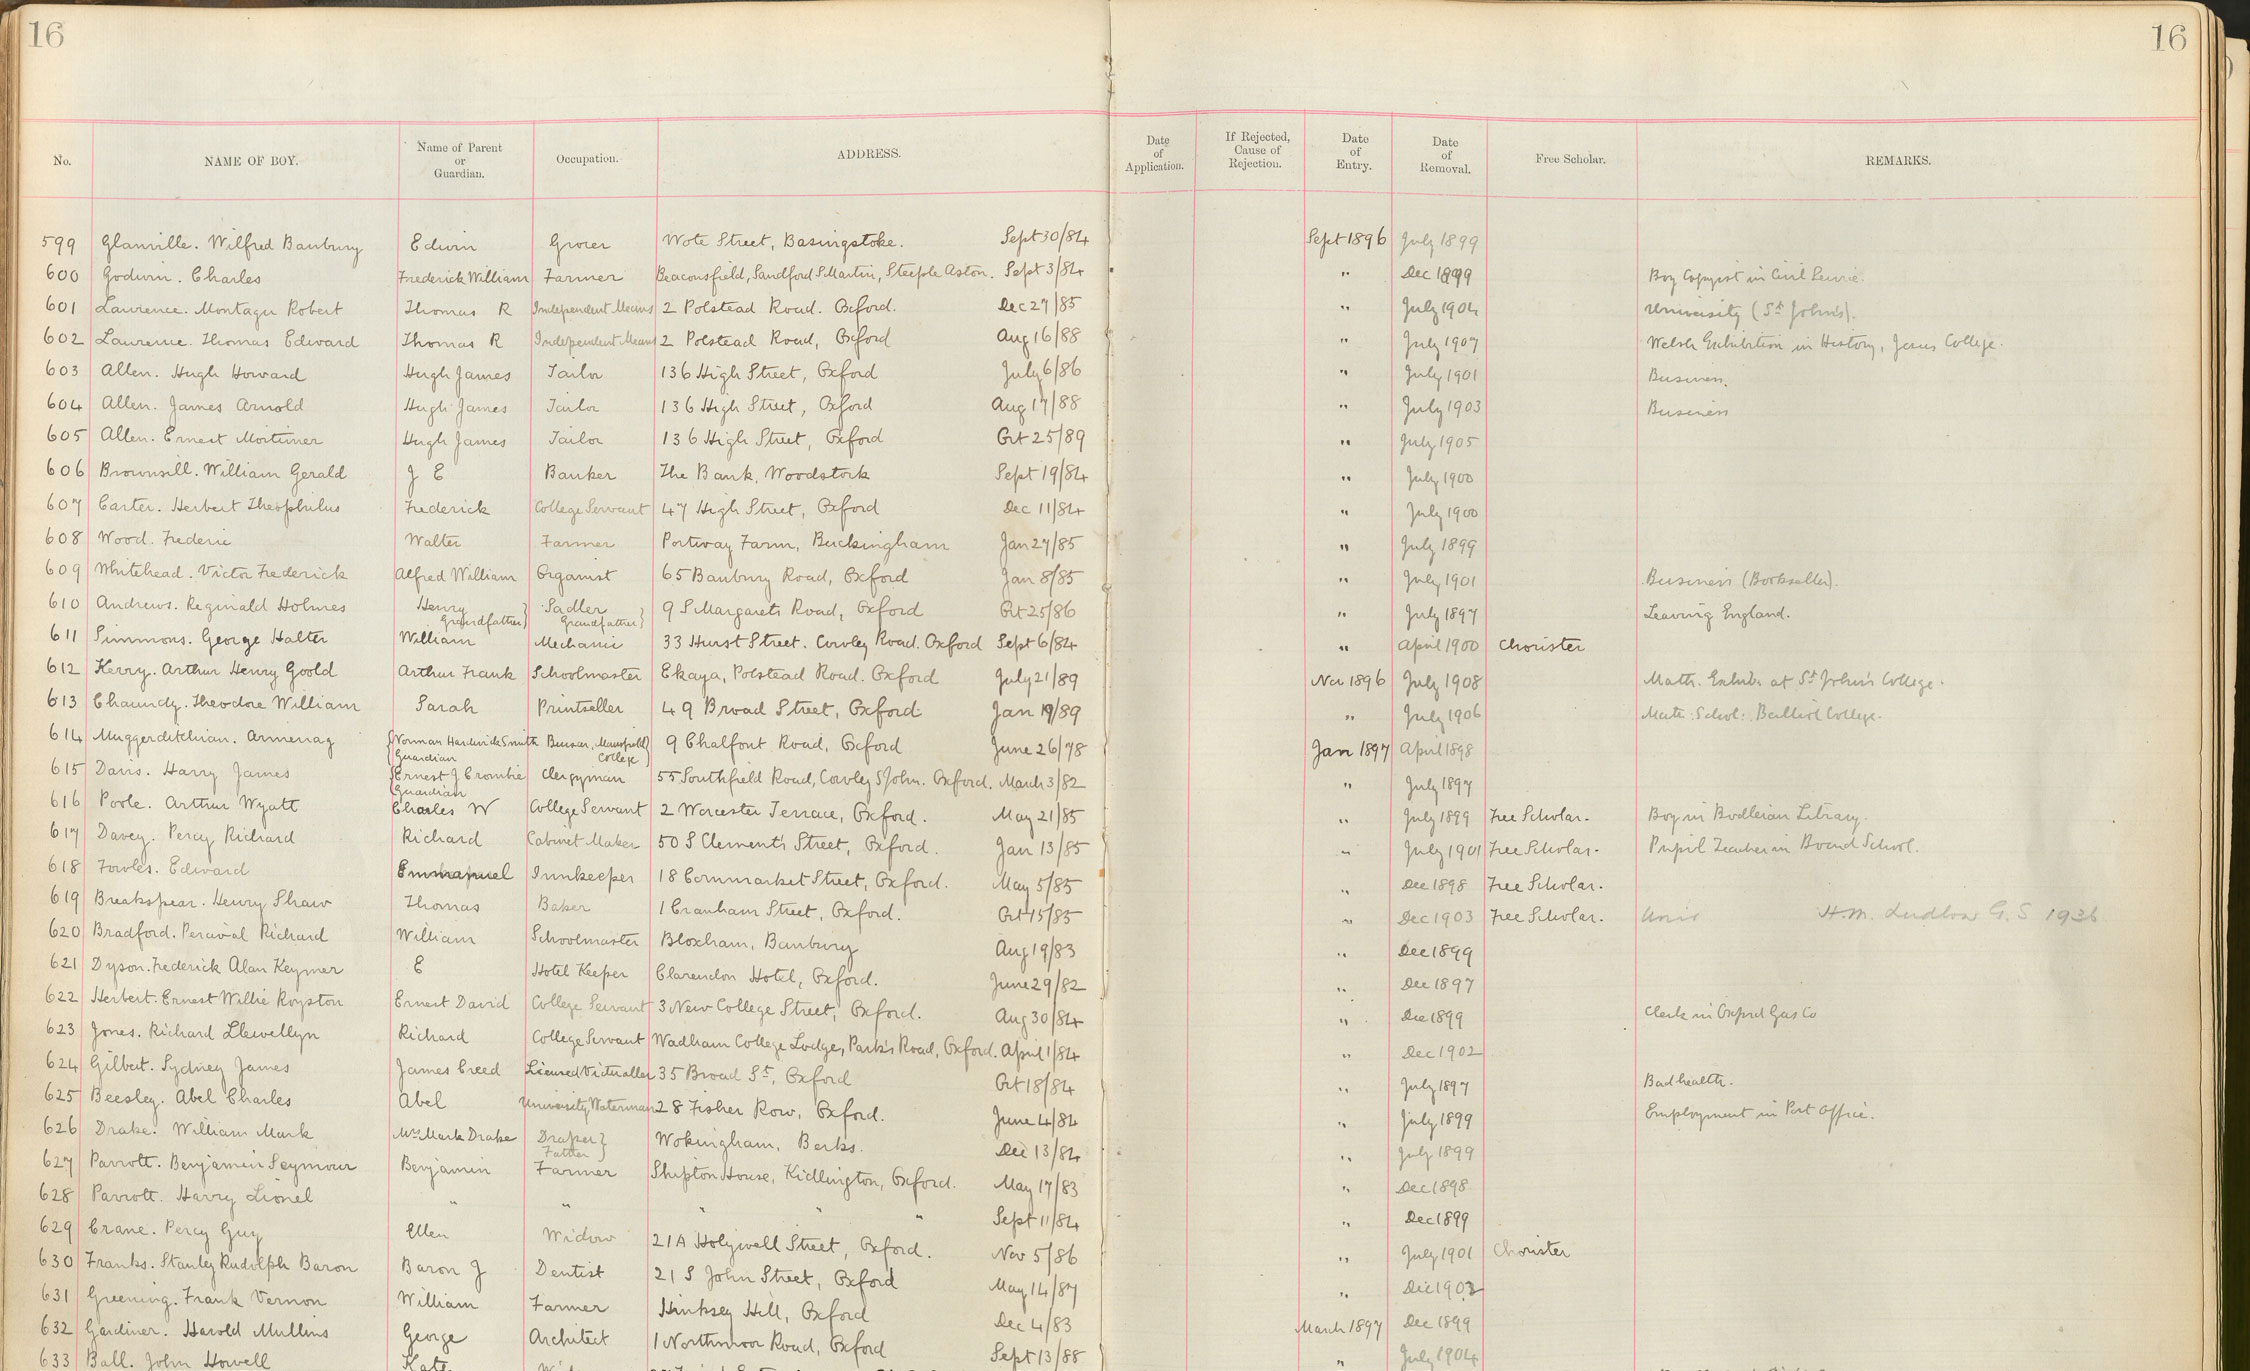 16 16
No. NAME OF BOY. Name of Parent or Guardian. Occupation. ADDRESS. Date of Application. If Rejected, Cause of Rejection. Date of Entry. Date of Removal. Free Scholar. REMARKS.
599 Glanville. Wilfred Banbury Edwin Grocer Wote Street, Basingstoke. Sept 30/84 Sept 1896 July 1899
600 Godwin. Charles Frederick William Farmer Beaconsfield, Sandford S Martin, Steeple Aston. Sept 3/84 " Dec 1899 Boy Copyist in Civil Service.
601 Lawrence. Montagu Robert Thomas R Independent Means 2 Polstead Road. Oxford. Dec 27/85 " July 1904 University (St John's).
602 Lawrence. Thomas Edward Thomas R Independent Means 2 Polstead Road, Oxford Aug 16/88 " July 1907 Welsh Exhibition in History, Jesus College.
603 Allen. Hugh Howard Hugh James Tailor 136 High Street, Oxford July 6/86 " July 1901 Business.
604 Allen. James Arnold Hugh James Tailor 136 High Street, Oxford Aug 17/88 " July 1903 Business
605 Allen. Ernest Mortimer Hugh James Tailor 136 High Street, Oxford Oct 25/89 " July 1905
606 Brownsill. William Gerald J E Banker The Bank, Woodstock Sept 19/84 " July 1900
607 Carter. Herbert Theophilus Frederick College Servant 47 High Street, Oxford Dec 11/84 " July 1900
608 Wood. Frederic Walter Farmer Portway Farm, Buckingham Jan 27/85 " July 1899
609 Whitehead. Victor Frederick Alfred William Organist 65 Banbury Road, Oxford Jan 8/85 " July 1901 Business (Bookseller).
610 Andrews. Reginald Holmes Henry Grandfather} Sadler Grandfather} 9 S Margarets Road, Oxford Oct 25/86 " July 1897 Leaving England.
611 Simmons. George Halter William Mechanic 33 Hurst Street. Cowley Road. Oxford Sept 6/84 " April 1900 Chorister
612 Kerry. Arthur Henry Goold Arthur Frank Schoolmaster Ekaya, Polstead Road. Oxford July 21/89 Nov 1896 July 1908 Math. Exhib. at St John's College.
613 Chaundy. Theodore William Sarah Printseller 49 Broad Street, Oxford Jan 19/89 " July 1906 Math: Schol: Balliol College.
614 Muggerditchian. Armenag {Norman Hardwick Smith Guardian Bursar, Mansfield College} 9 Chalfont Road, Oxford June 26/78 Jan 1897 April 1898
615 Davis. Harry James {Ernest J Crombie Guardian Clergyman 55 Southfield Road, Cowley S John. Oxford. March 3/82 " July 1897
616 Poole. Arthur Wyatt Charles W College Servant 2 Worcester Terrace, Oxford. May 21/85 " July 1899 Free Scholar. Boy in Bodleian Library.
617 Davey. Percy Richard Richard Cabinet Maker 50 S Clement's Street, Oxford. Jan 13/85 " July 1901 Free Scholar. Pupil Teacher in Board School.
618 Fowles. Edward Emmanuel Innkeeper 18 Cornmarket Street, Oxford. May 5/85 " Dec 1898 Free Scholar.
619 Breakspear. Henry Shaw Thomas Baker 1 Cranham Street, Oxford. Oct 15/85 " Dec 1903 Free Scholar. Univ H.M. Ludlow G.S 1936
620 Bradford. Percival Richard William Schoolmaster Bloxham, Banbury Aug 19/83 " Dec 1899
621 Dyson. Frederick Alan Keymer E Hotel Keeper Clarendon Hotel, Oxford. June 29/82 " Dec 1897
622 Herbert. Ernest Willie Royston Ernest David College Servant 3 New College Street, Oxford. Aug 30/84 " Dec 1899 Clerk in Oxford Gas Co
623 Jones. Richard Llewellyn Richard College Servant Wadham College Lodge, Park's Road, Oxford. April 1/84 " Dec 1902
624 Gilbert. Sydney James James Creed Licensed Victualler 35 Broad St, Oxford Oct 18/84 " July 1897 Bad health.
625 Beesley. Abel Charles Abel University Waterman 28 Fisher Row, Oxford. June 4/84 " July 1899 Employment in Post Office.
626 Drake. William Mark Mrs Mark Drake Draper Father} Wokingham, Berks. Dec 13/84 " July 1899
627 Parrott. Benjamin Seymour Benjamin Farmer Shipton House, Kidlington, Oxford. May 17/83 " Dec 1898
628 Parrott. Harry Lionel " " " " " Sept 11/84 " Dec 1899
629 Crane. Percy Guy Ellen Widow 21A Holywell Street, Oxford. Nov 5/86 " July 1901 Chorister
630 Franks. Stanley Rudolph Baron Baron J Dentist 21 S John Street, Oxford May 14/87 " Dec 1902
631 Greening. Frank Vernon William Farmer Hinksey Hill, Oxford Dec 4/83 March 1897 Dec 1899
632 Gardiner. Harold Mullins George Architect 1 Northmoor Road, Oxford Sept 13/88 " July 1904
633 Ball. John Howell Kate